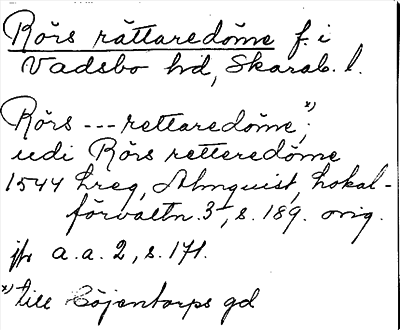 Rörs rättaredöme f. i
Vadsbo hd, Skarab. l.
Rörs --- rettaredöme x);
udi Rörs retteredöme
1544 hreg, Almquist, Lokal-
förvaltn. 3, s. 189. orig.
jfr a.a. 2, s. 171.
x) till Göjentorps gd